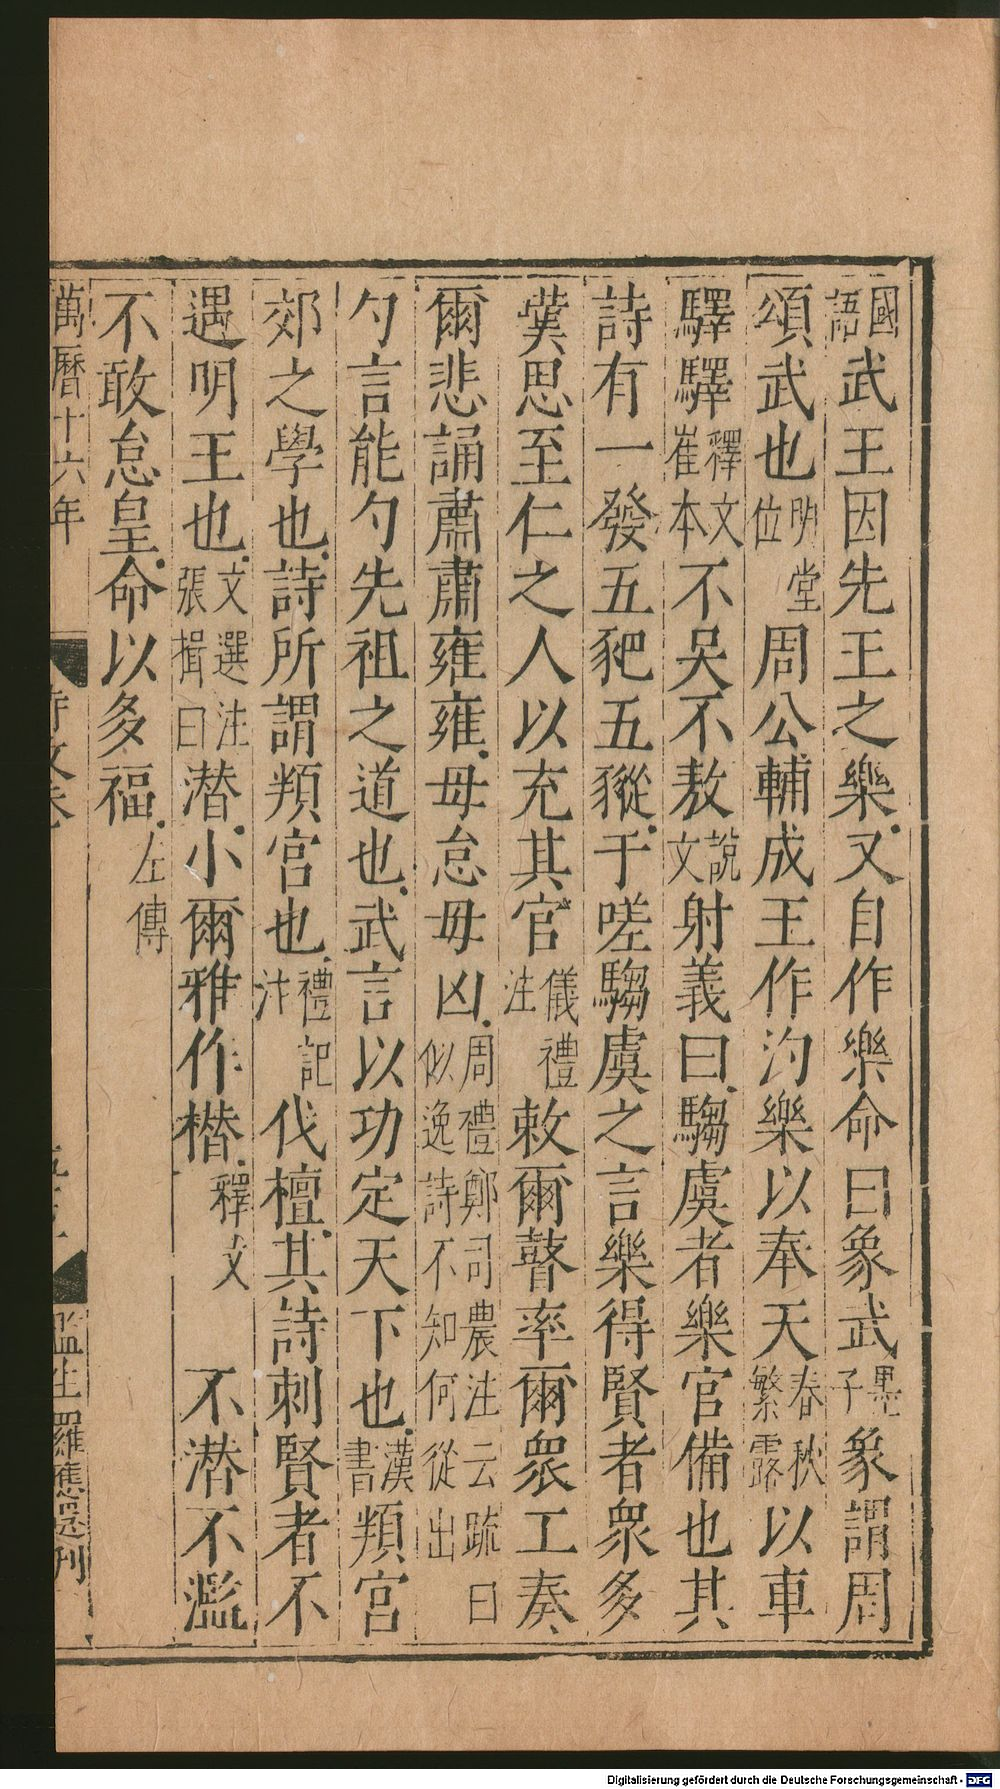 國語武王因先王之樂又自作樂命曰象武墨子象謂周
頌武也明堂位周公輔成王作汋樂以奉天春秋繁露以車
驛驛釋文崔本不吳不敖說文射義曰騶虞者樂官備也其
詩有一發五豝五豵于嗟騶虞之言樂得賢者衆多
蓂思至仁之人以充其官儀禮注敕爾瞽率爾衆工奏
爾悲誦肅肅雍雍毋怠毋凶周禮鄭司農注云疏曰似逸詩不知何從出
勺言能勺先祖之道也武言以功定天下也漢書頖宮
郊之學也詩所謂頖宮也禮記注伐檀其詩刺賢者不
遇明王也文選注張揖曰潜小爾雅作橬釋文 不潜不濫
不敢怠皇命以多福左傳
萬曆十六年
監生羅應選刊
Digitalisierung gefördert durch die Deutsche Forschungsgemeinschaft - DFG